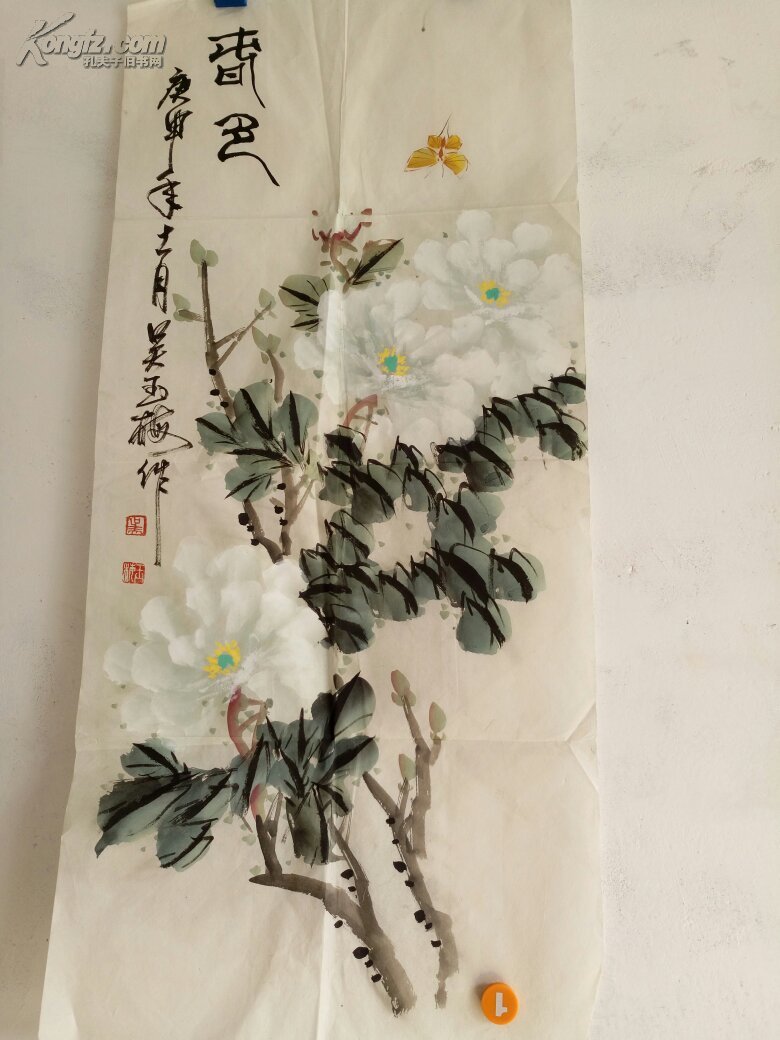 Kongfz.com
孔夫子旧书网
春色
庚申年十一月吴玉梅作
吴
玉梅
1